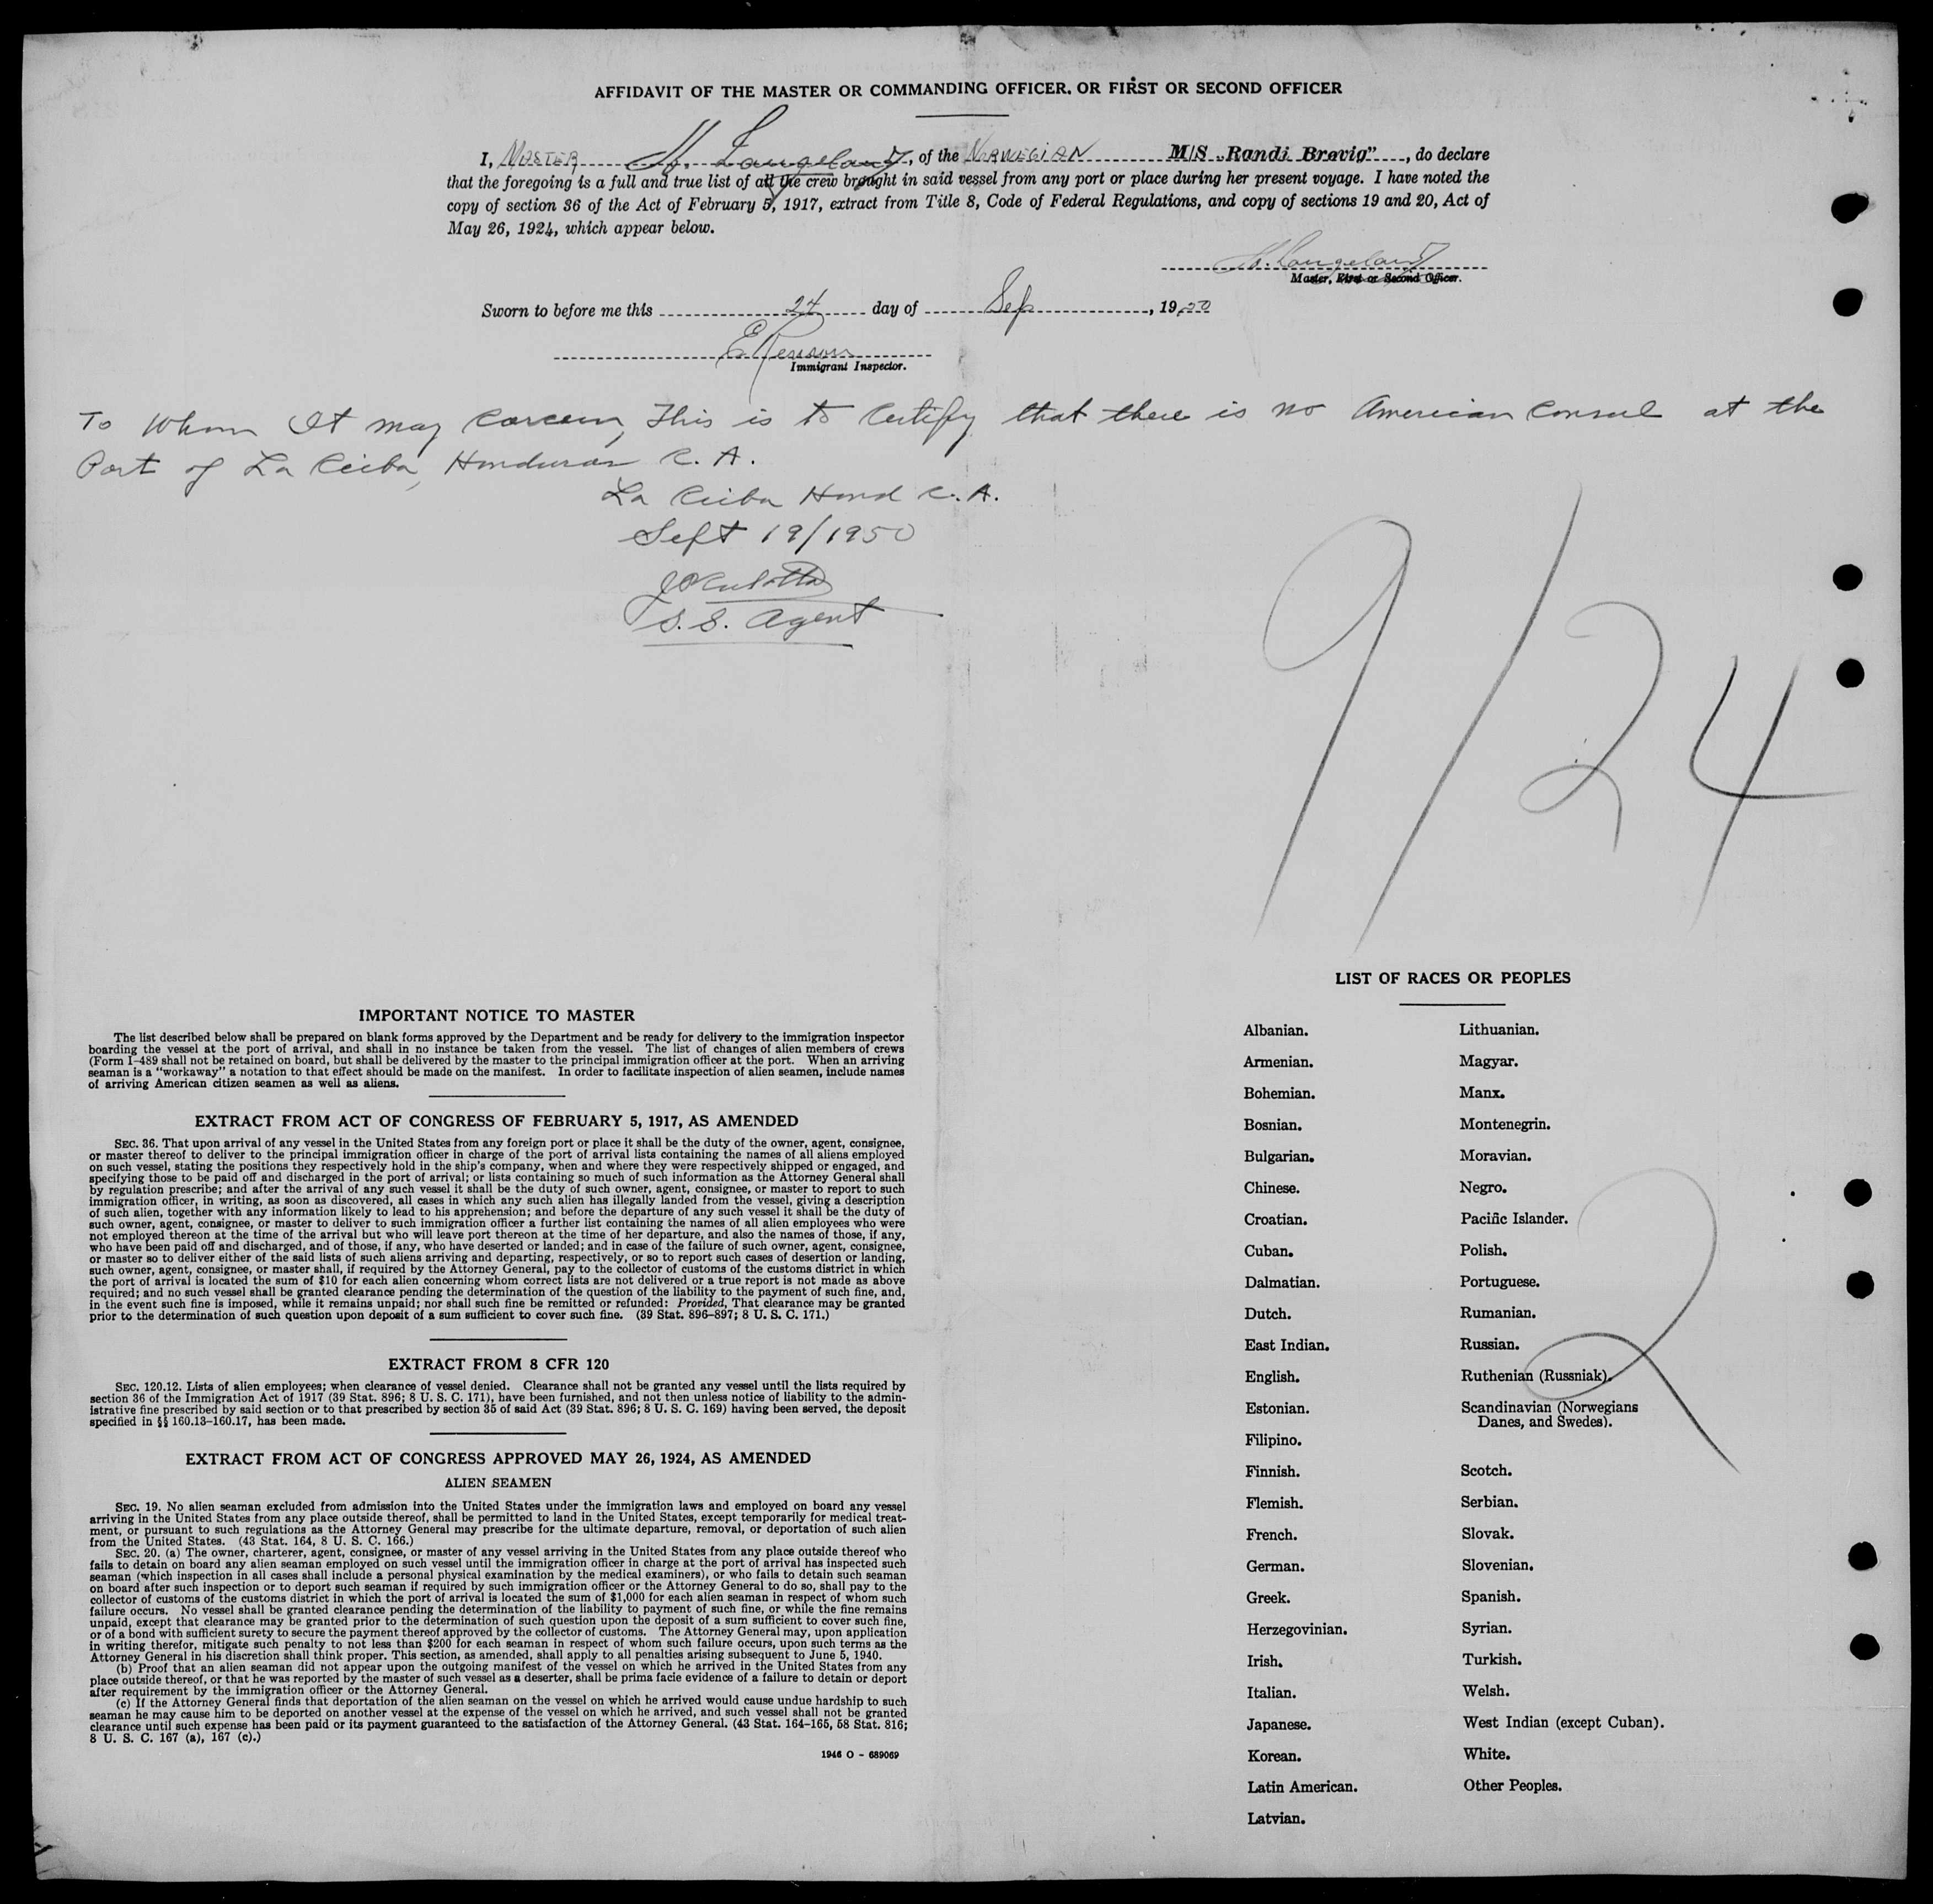 AFFIDAVIT OF THE MASTER OR COMMANDING OFFICER, OR FIRST OR SECOND OFFICER
I, MASTER Langeland, of the NORWEGIAN M/S „Randi Brøvig”, do declare
that the foregoing is a full and true list of all the crew brought in said vessel from any port or place during her present voyage. I have noted the
copy of section 36 of the Act of February 5, 1917, extract from Title 8, Code of Federal Regulations, and copy of sections 19 and 20, Act of
May 26, 1924, which appear below.
Langeland
Master, First or Second Officer.
Sworn to before me this 24 day of Sep, 1950
Immigrant Inspector.
To Whom It may Concern, This is to Certify that there is no American Consul at the
Port of La Ceiba, Honduras C. A.
La Ceiba Hond C. A.
Sept 19/1950
S. S. Agent
9/24
IMPORTANT NOTICE TO MASTER
The list described below shall be prepared on blank forms approved by the Department and be ready for delivery to the immigration inspector
boarding the vessel at the port of arrival, and shall in no instance be taken from the vessel. The list of changes of alien members of crews
(Form I-489 shall not be retained on board, but shall be delivered by the master to the principal immigration officer at the port. When an arriving
seaman is a "workaway" a notation to that effect should be made on the manifest. In order to facilitate inspection of alien seamen, include names
of arriving American citizen seamen as well as aliens.
EXTRACT FROM ACT OF CONGRESS OF FEBRUARY 5, 1917, AS AMENDED
SEC. 36. That upon arrival of any vessel in the United States from any foreign port or place it shall be the duty of the owner, agent, consignee,
or master thereof to deliver to the principal immigration officer in charge of the port of arrival lists containing the names of all aliens employed
on such vessel, stating the positions they respectively hold in the ship's company, when and where they were respectively shipped or engaged, and
specifying those to be paid off and discharged in the port of arrival; or lists containing so much of such information as the Attorney General shall
by regulation prescribe; and after the arrival of any such vessel it shall be the duty of such owner, agent, consignee, or master to report to such
immigration officer, in writing, as soon as discovered, all cases in which any such alien has illegally landed from the vessel, giving a description
of such alien, together with any information likely to lead to his apprehension; and before the departure of any such vessel it shall be the duty of
such owner, agent, consignee, or master to deliver to such immigration officer a further list containing the names of all alien employees who were
not employed thereon at the time of the arrival but who will leave port thereon at the time of her departure, and also the names of those, if any,
who have been paid off and discharged, and of those, if any, who have deserted or landed; and in case of the failure of such owner, agent, consignee,
or master so to deliver either of the said lists of such aliens arriving and departing, respectively, or so to report such cases of desertion or landing,
such owner, agent, consignee, or master shall, if required by the Attorney General, pay to the collector of customs of the customs district in which
the port of arrival is located the sum of $10 for each alien concerning whom correct lists are not delivered or a true report is not made as above
required; and no such vessel shall be granted clearance pending the determination of the question of the liability to the payment of such fine, and,
in the event such fine is imposed, while it remains unpaid; nor shall such fine be remitted or refunded: Provided, That clearance may be granted
prior to the determination of such question upon deposit of a sum sufficient to cover such fine. (39 Stat. 896-897; 8 U. S. C. 171.)
EXTRACT FROM 8 CFR 120
SEC. 120.12. Lists of alien employees; when clearance of vessel denied. Clearance shall not be granted any vessel until the lists required by
section 36 of the Immigration Act of 1917 (39 Stat. 896; 8 U. S. C. 171), have been furnished, and not then unless notice of liability to the admin-
istrative fine prescribed by said section or to that prescribed by section 35 of said Act (39 Stat. 896; 8 U. S. C. 169) having been served, the deposit
specified in §§ 160.13-160.17, has been made.
EXTRACT FROM ACT OF CONGRESS APPROVED MAY 26, 1924, AS AMENDED
ALIEN SEAMEN
SEC. 19. No alien seaman excluded from admission into the United States under the immigration laws and employed on board any vessel
arriving in the United States from any place outside thereof, shall be permitted to land in the United States, except temporarily for medical treat-
ment, or pursuant to such regulations as the Attorney General may prescribe for the ultimate departure, removal, or deportation of such alien
from the United States. (43 Stat. 164, 8 U. S. C. 166.)
SEC. 20. (a) The owner, charterer, agent, consignee, or master of any vessel arriving in the United States from any place outside thereof who
fails to detain on board any alien seaman employed on such vessel until the immigration officer in charge at the port of arrival has inspected such
seaman (which inspection in all cases shall include a personal physical examination by the medical examiners), or who fails to detain such seaman
on board after such inspection or to deport such seaman if required by such immigration officer or the Attorney General to do so, shall pay to the
collector of customs of the customs district in which the port of arrival is located the sum of $1,000 for each alien seaman in respect of whom such
failure occurs. No vessel shall be granted clearance pending the determination of the liability to payment of such fine, or while the fine remains
unpaid, except that clearance may be granted prior to the determination of such question upon the deposit of a sum sufficient to cover such fine,
or of a bond with sufficient surety to secure the payment thereof approved by the collector of customs. The Attorney General may, upon application
in writing therefor, mitigate such penalty to not less than $200 for each seaman in respect of whom such failure occurs, upon such terms as the
Attorney General in his discretion shall think proper. This section, as amended, shall apply to all penalties arising subsequent to June 5, 1940.
(b) Proof that an alien seaman did not appear upon the outgoing manifest of the vessel on which he arrived in the United States from any
place outside thereof, or that he was reported by the master of such vessel as a deserter, shall be prima facie evidence of a failure to detain or deport
after requirement by the immigration officer or the Attorney General.
(c) If the Attorney General finds that deportation of the alien seaman on the vessel on which he arrived would cause undue hardship to such
seaman he may cause him to be deported on another vessel at the expense of the vessel on which he arrived, and such vessel shall not be granted
clearance until such expense has been paid or its payment guaranteed to the satisfaction of the Attorney General. (43 Stat. 164-165, 58 Stat. 816;
8 U. S. C. 167 (a), 167 (c).)
1946 O - 689069
LIST OF RACES OR PEOPLES
Albanian.
Armenian.
Bohemian.
Bosnian.
Bulgarian.
Chinese.
Croatian.
Cuban.
Dalmatian.
Dutch.
East Indian.
English.
Estonian.
Filipino.
Finnish.
Flemish.
French.
German.
Greek.
Herzegovinian.
Irish.
Italian.
Japanese.
Korean.
Latin American.
Latvian.
Lithuanian.
Magyar.
Manx.
Montenegrin.
Moravian.
Negro.
Pacific Islander.
Polish.
Portuguese.
Rumanian.
Russian.
Ruthenian (Russniak).
Scandinavian (Norwegians
Danes, and Swedes).
Scotch.
Serbian.
Slovak.
Slovenian.
Spanish.
Syrian.
Turkish.
Welsh.
West Indian (except Cuban).
White.
Other Peoples.
2